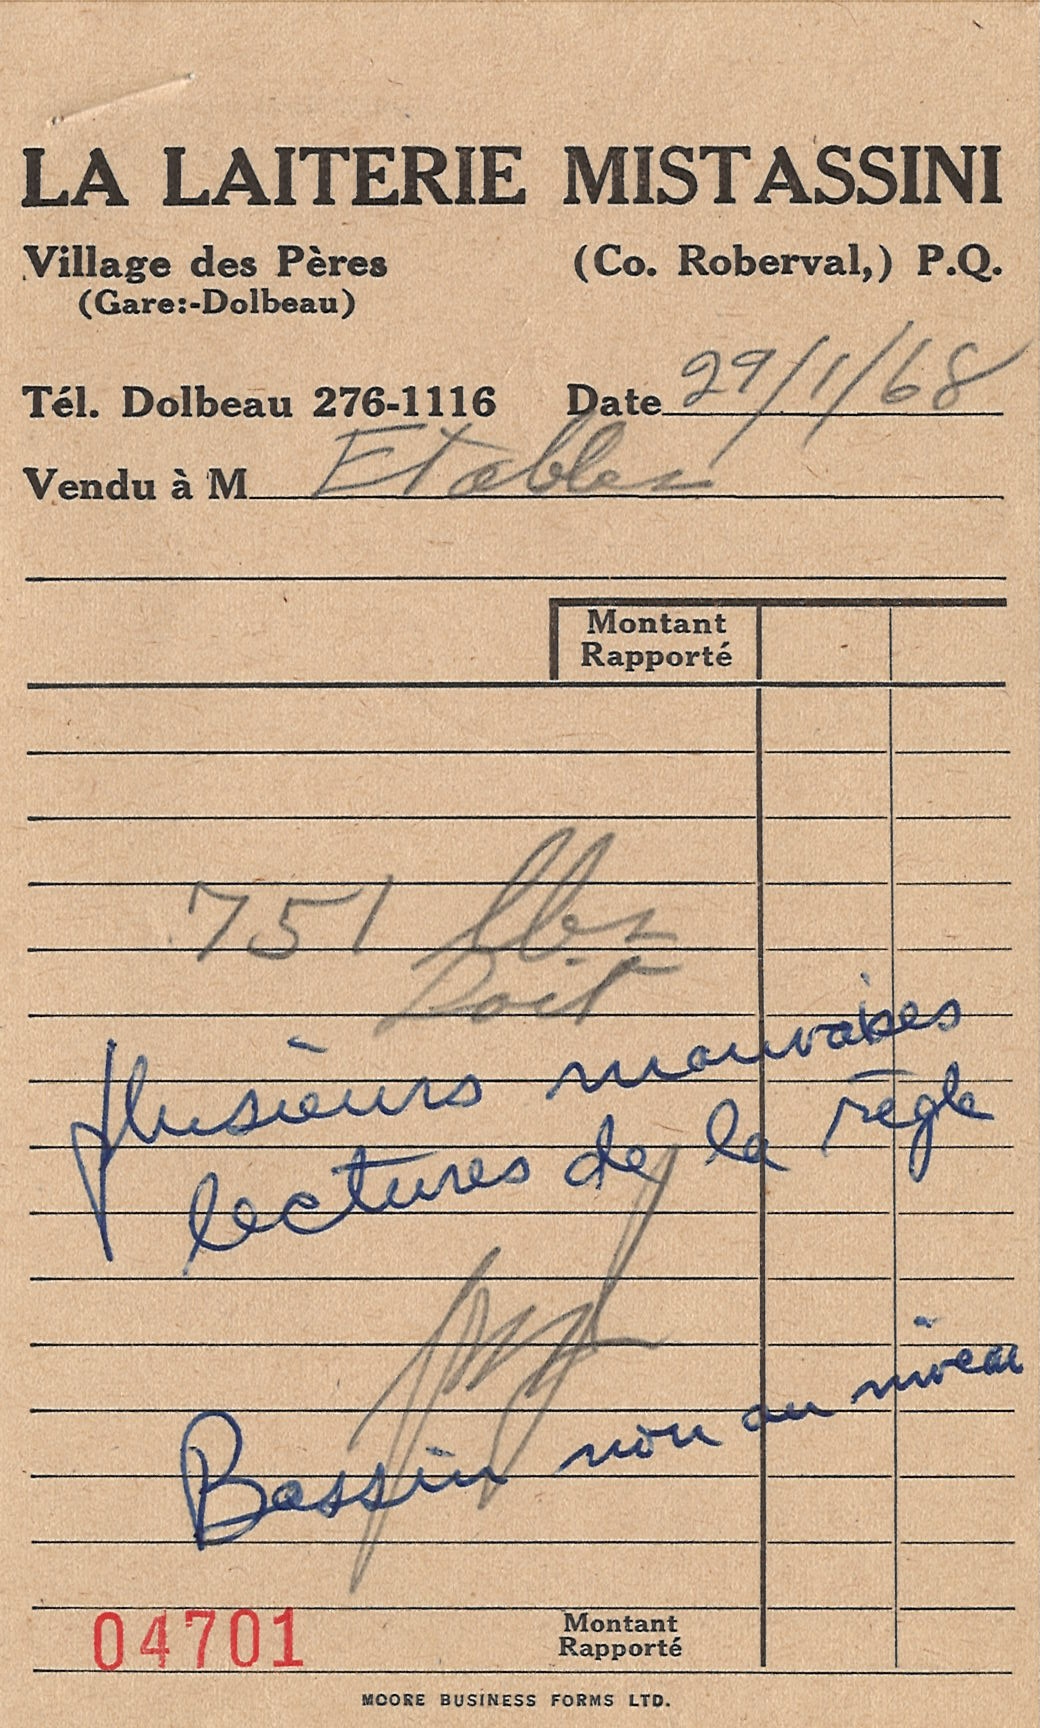 LA LAITERIE MISTASSINI
Village des Pères (Co. Roberval,) P.Q.
(Gare:-Dolbeau)
Tél. Dolbeau 276-1116 Date 29/1/68
Vendu à M Etables
Montant
Rapporté
751 lbs
Loit
plusieurs mauvaises
lectures de la règle
Bassin non au niveau
04701
Montant
Rapporté
MOORE BUSINESS FORMS LTD.